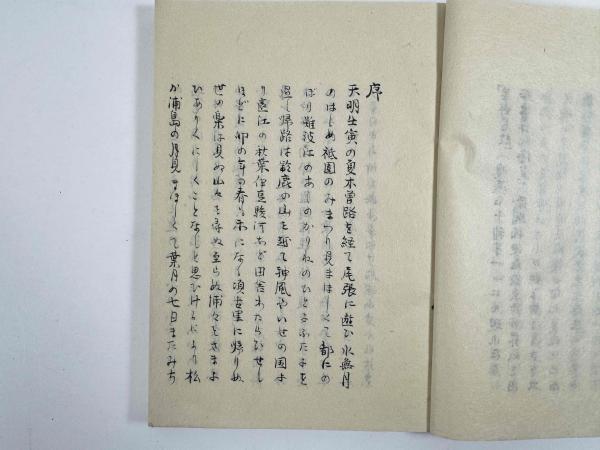 序
天明壬寅の夏木曽路を経て尾張に遊び水無月
のはじめ祇園のみまつり見まほしくて都にの
ぼり難波江のあしのかりねのひとよふたよを
過し帰路は鈴鹿の山を越て神風やいせの国よ
り遠江の秋葉伊豆駿河など田舎わたらひせし
ほどに卯の年の春も末になる頃古里に帰りぬ
世の業は見ぬ山々を尋ぬ至らぬ浦々をさまよ
ひありくにしくことなしと思ひけるにより松
が浦島の月見まほしくて葉月の七日またみち